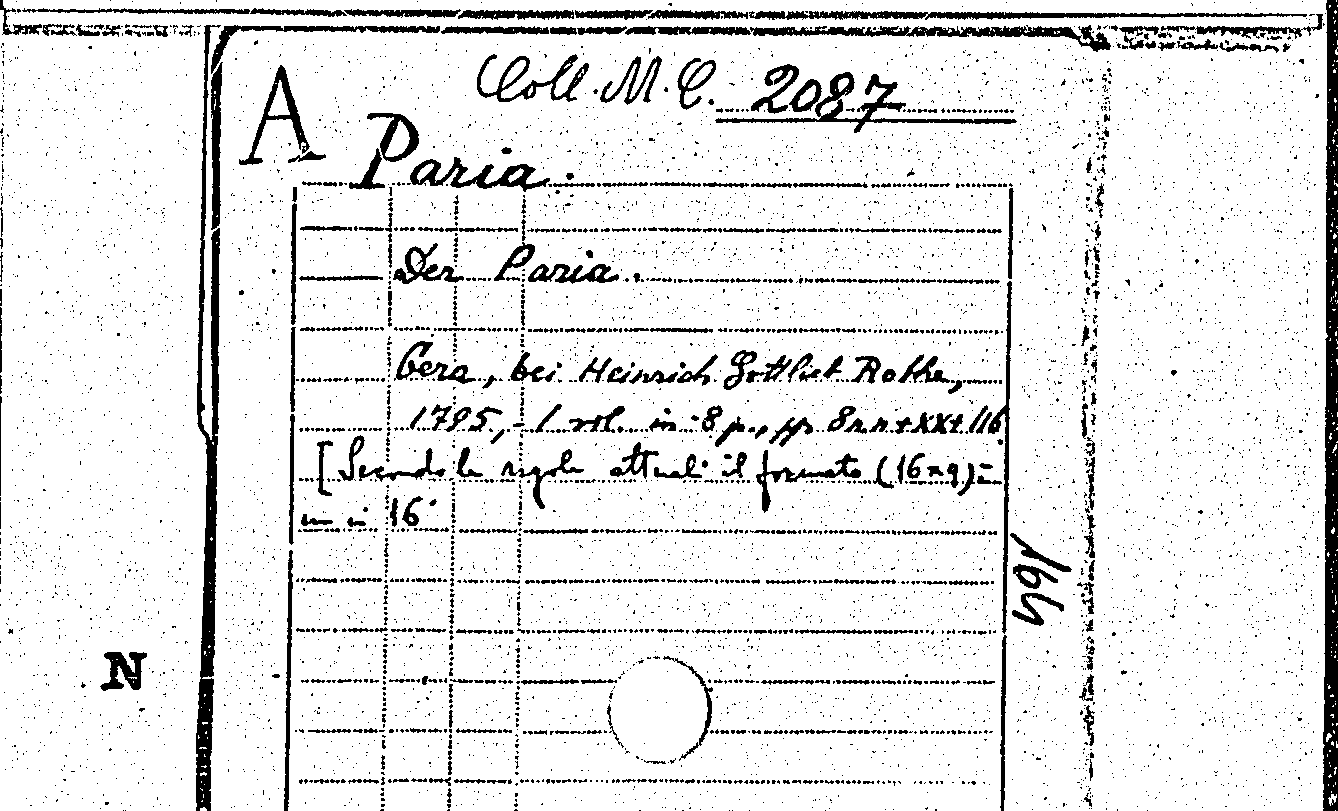 A
Coll. M. C. 2087
Paria.
Der Paria.
Gera, bei Heinrich Gottlieb Rothe,
1795, - 1 vol. in-8 p., pp 8nn+XX+116
[Secondo le regole attuali il formato (16x9) =
in 16°
N